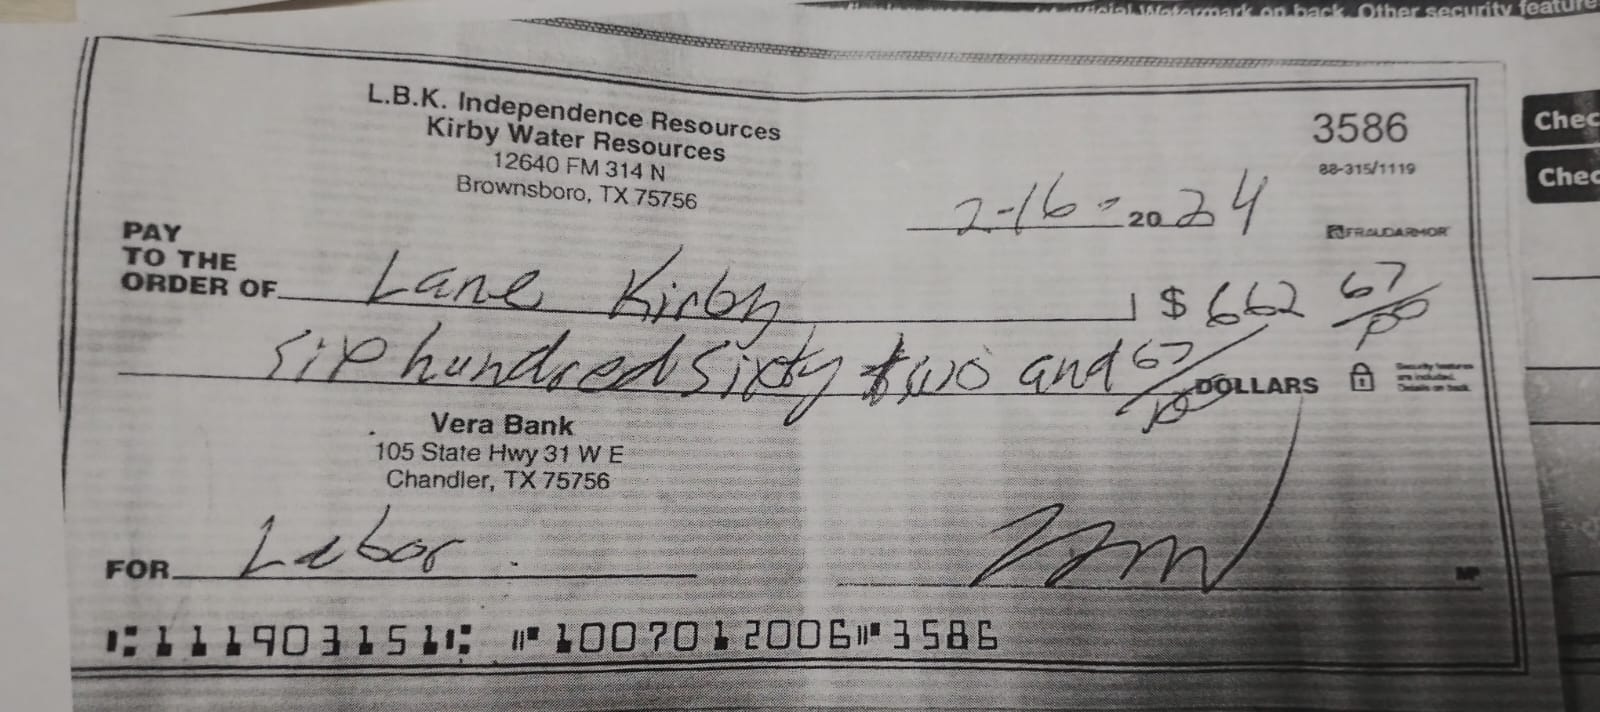 Watermark on back. Other security feature
L.B.K. Independence Resources
Kirby Water Resources
12640 FM 314 N
Brownsboro, TX 75756
3586
88-315/1119
2-16- 20 24
FRAUDARMOR
PAY
TO THE
ORDER OF Lane Kirby $ 662 67/00
six hundred sixty two and 67/00 DOLLARS
Security features
are included.
Details on back.
Vera Bank
105 State Hwy 31 W E
Chandler, TX 75756
FOR Labor
MP
⑆111903151⑆ ⑈1007012006⑈3586
Chec
Chec